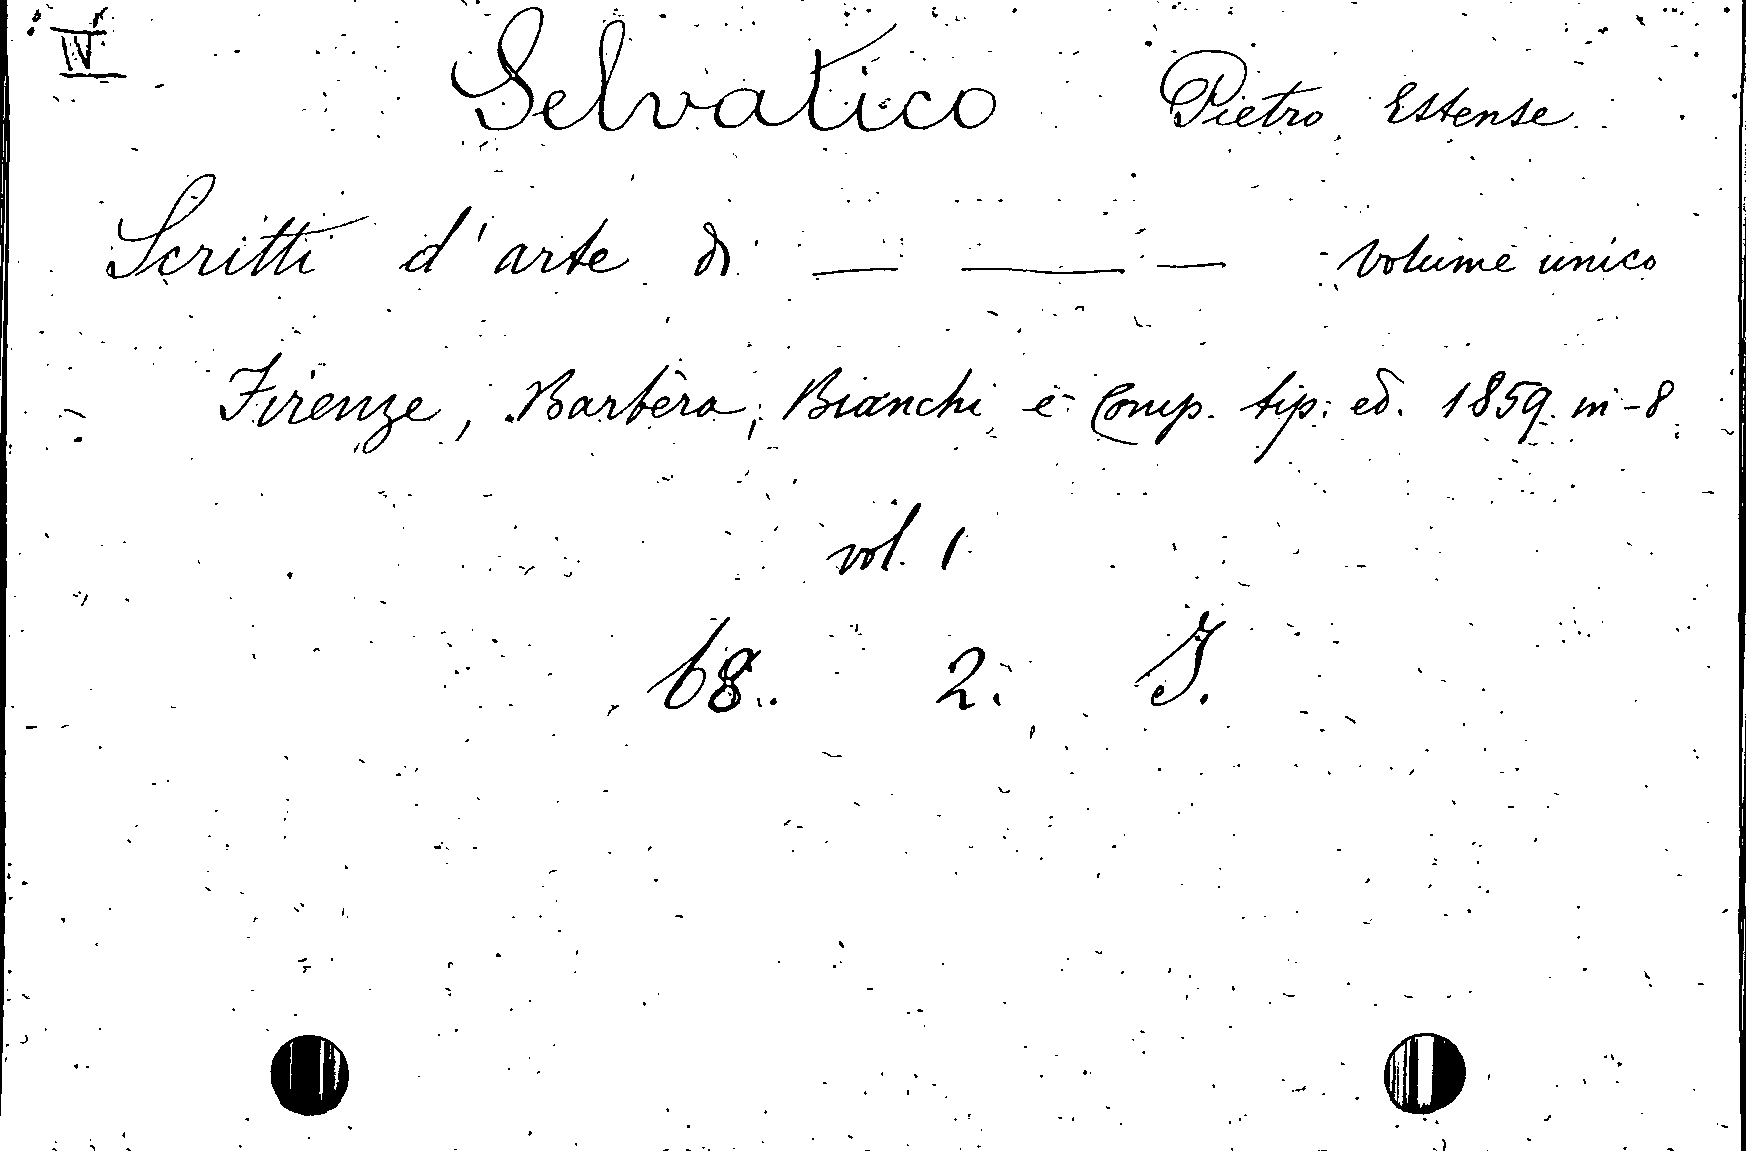 IV
Selvatico Pietro Estense
Scritti d'arte di — — — volume unico
Firenze, Barbèra, Bianchi e Comp. tip. ed. 1859. in-8
vol. 1
68. 2. I.